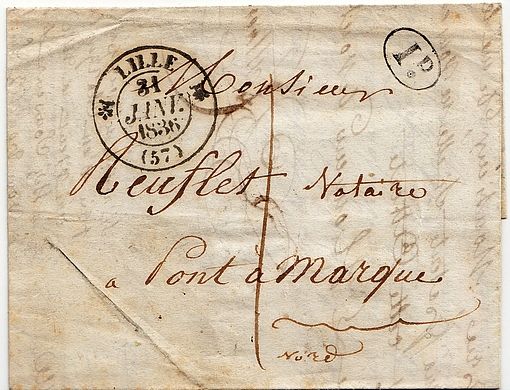 LILLE
31
JANV.
1836
(57)
1D.
Monsieur
Reuflet Notaire
a Pont à Marque
Nord